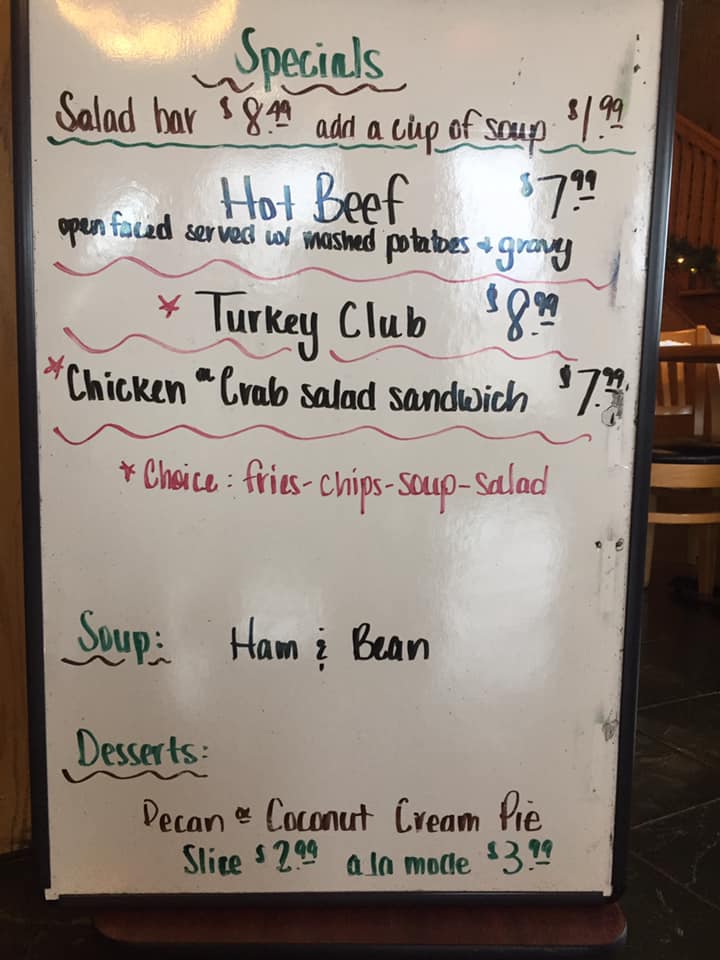 Specials
Salad bar $8.49 add a cup of soup $1.99
Hot Beef $7.99
open faced served w/ mashed potatoes + gravy
* Turkey Club $8.99
* Chicken or Crab salad sandwich $7.99
* Choice: fries-chips-soup-salad
Soup: Ham & Bean
Desserts:
Pecan or Coconut Cream Pie
Slice $2.99 a la mode $3.99